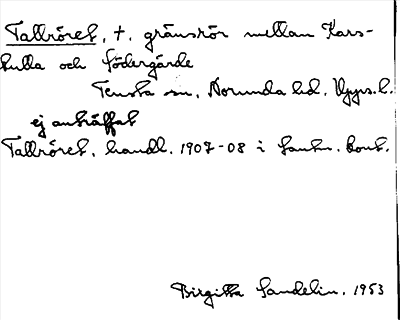 Tallröret, †, gränsrör mellan Kars-
kulla och Södergärde
Tensta sn, Norunda hd, Upps. l.
ej anträffat
Tallröret, handl. 1907-08 i Lantm. kont.
Birgitta Sandelin. 1953